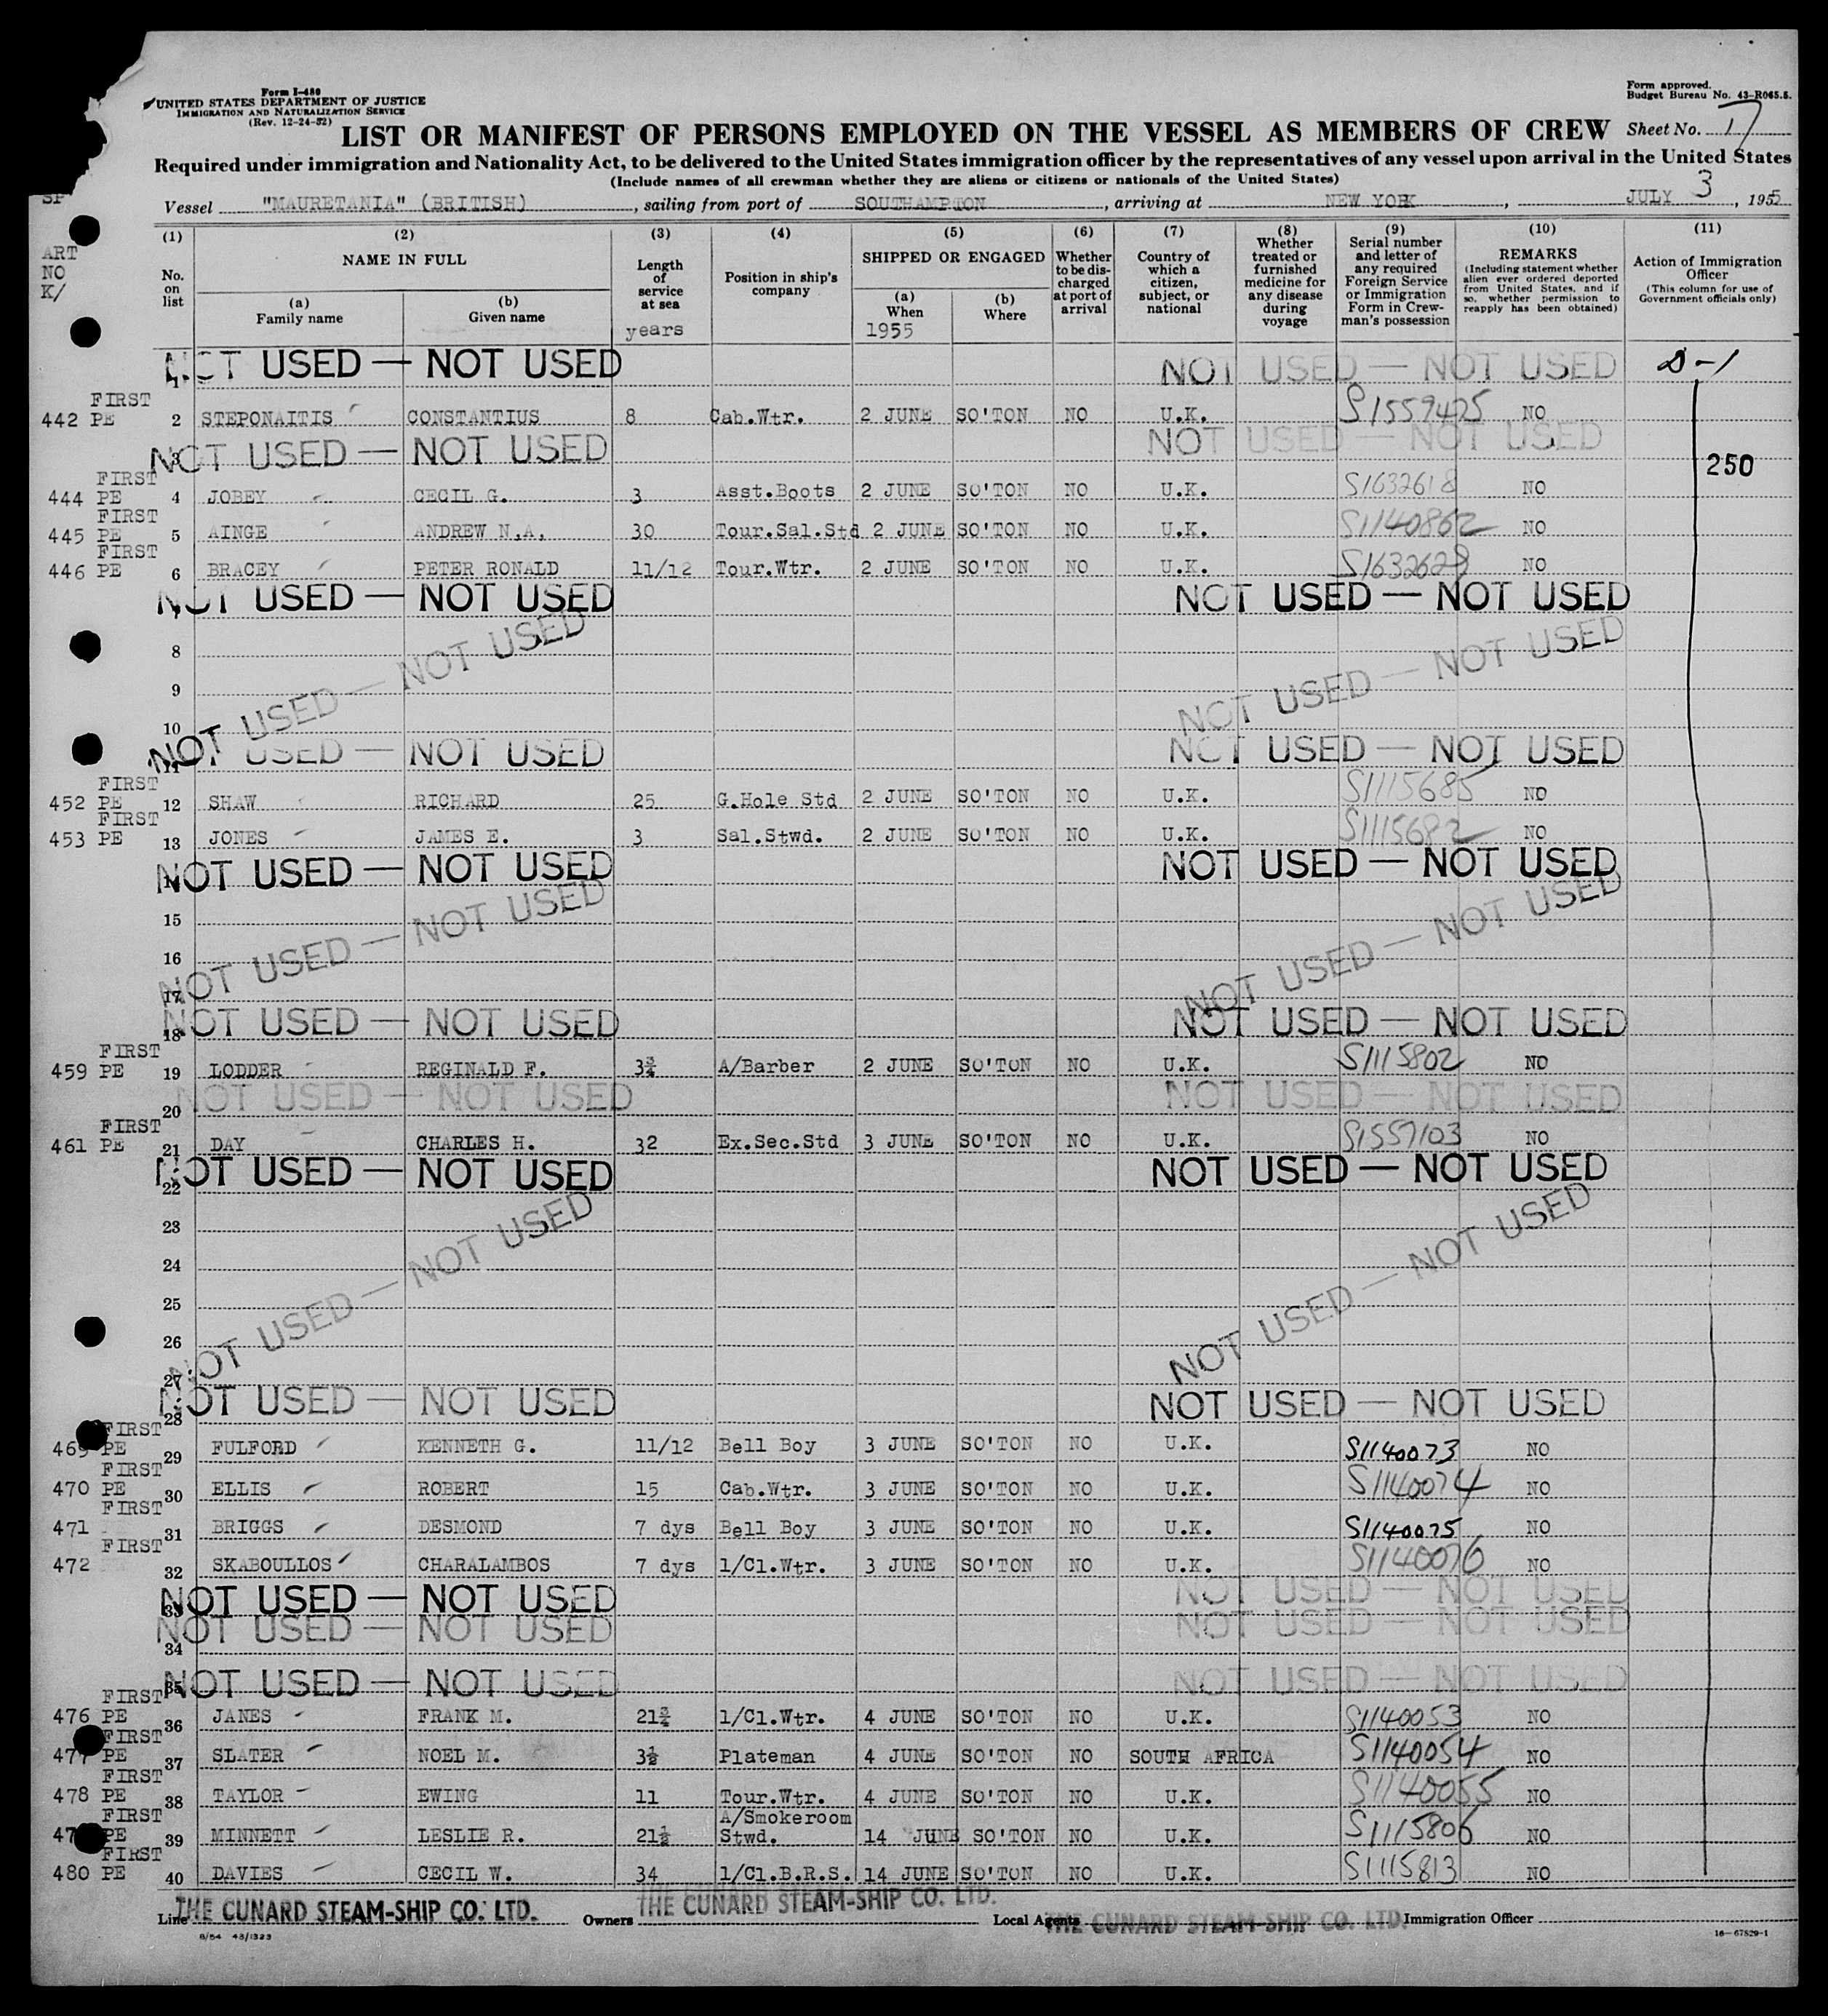 Form I-480
UNITED STATES DEPARTMENT OF JUSTICE
IMMIGRATION AND NATURALIZATION SERVICE
(Rev. 12-24-52)
Form approved.
Budget Bureau No. 43-R065.5.
LIST OR MANIFEST OF PERSONS EMPLOYED ON THE VESSEL AS MEMBERS OF CREW Sheet No. 17
Required under immigration and Nationality Act, to be delivered to the United States immigration officer by the representatives of any vessel upon arrival in the United States
(Include names of all crewman whether they are aliens or citizens or nationals of the United States)
Vessel "MAURETANIA" (BRITISH), sailing from port of SOUTHAMPTON, arriving at NEW YORK, JULY 3, 1955
ART
NO
K/
(1) No. on list
(2) NAME IN FULL (a) Family name (b) Given name
(3) Length of service at sea years
(4) Position in ship's company
(5) SHIPPED OR ENGAGED (a) When 1955 (b) Where
(6) Whether to be discharged at port of arrival
(7) Country of which a citizen, subject, or national
(8) Whether treated or furnished medicine for any disease during voyage
(9) Serial number and letter of any required Foreign Service or Immigration Form in Crewman's possession
(10) REMARKS (Including statement whether alien ever ordered deported from United States, and if so, whether permission to reapply has been obtained)
(11) Action of Immigration Officer (This column for use of Government officials only)
1 NOT USED — NOT USED NOT USED — NOT USED D-1
FIRST
442 PE 2 STEPONAITIS CONSTANTIUS 8 Cab.Wtr. 2 JUNE SO'TON NO U.K. S1559425 NO
3 NOT USED — NOT USED NOT USED — NOT USED 250
FIRST
444 PE 4 JOBEY CECIL G. 3 Asst.Boots 2 JUNE SO'TON NO U.K. S1632618 NO
FIRST
445 PE 5 AINGE ANDREW N.A. 30 Tour.Sal.Std 2 JUNE SO'TON NO U.K. S1140862 NO
FIRST
446 PE 6 BRACEY PETER RONALD 11/12 Tour.Wtr. 2 JUNE SO'TON NO U.K. S1632628 NO
7 NOT USED — NOT USED NOT USED — NOT USED
8
9
10 NOT USED — NOT USED NOT USED — NOT USED
11 NOT USED — NOT USED NOT USED — NOT USED
FIRST
452 PE 12 SHAW RICHARD 25 G.Hole Std 2 JUNE SO'TON NO U.K. S1115685 NO
FIRST
453 PE 13 JONES JAMES E. 3 Sal.Stwd. 2 JUNE SO'TON NO U.K. S1115682 NO
14 NOT USED — NOT USED NOT USED — NOT USED
15
16
17 NOT USED — NOT USED NOT USED — NOT USED
18 NOT USED — NOT USED NOT USED — NOT USED
FIRST
459 PE 19 LODDER REGINALD F. 3¾ A/Barber 2 JUNE SO'TON NO U.K. S1115802 NO
20 NOT USED — NOT USED NOT USED — NOT USED
FIRST
461 PE 21 DAY CHARLES H. 32 Ex.Sec.Std 3 JUNE SO'TON NO U.K. S1557103 NO
22 NOT USED — NOT USED NOT USED — NOT USED
23
24
25
26
27 NOT USED — NOT USED NOT USED — NOT USED
28 NOT USED — NOT USED NOT USED — NOT USED
FIRST
469 PE 29 FULFORD KENNETH G. 11/12 Bell Boy 3 JUNE SO'TON NO U.K. S1140073 NO
FIRST
470 PE 30 ELLIS ROBERT 15 Cab.Wtr. 3 JUNE SO'TON NO U.K. S1140074 NO
FIRST
471 31 BRIGGS DESMOND 7 dys Bell Boy 3 JUNE SO'TON NO U.K. S1140075 NO
FIRST
472 32 SKABOULLOS CHARALAMBOS 7 dys 1/Cl.Wtr. 3 JUNE SO'TON NO U.K. S1140076 NO
33 NOT USED — NOT USED NOT USED — NOT USED
34 NOT USED — NOT USED NOT USED — NOT USED
35 NOT USED — NOT USED NOT USED — NOT USED
FIRST
476 PE 36 JANES FRANK M. 21¾ 1/Cl.Wtr. 4 JUNE SO'TON NO U.K. S1140053 NO
FIRST
477 PE 37 SLATER NOEL M. 3½ Plateman 4 JUNE SO'TON NO SOUTH AFRICA S1140054 NO
FIRST
478 PE 38 TAYLOR EWING 11 Tour.Wtr. 4 JUNE SO'TON NO U.K. S1140055 NO
FIRST A/Smokeroom
47 PE 39 MINNETT LESLIE R. 21½ Stwd. 14 JUNE SO'TON NO U.K. S1115806 NO
FIRST
480 PE 40 DAVIES CECIL W. 34 1/Cl.B.R.S. 14 JUNE SO'TON NO U.K. S1115813 NO
Line THE CUNARD STEAM-SHIP CO. LTD. Owners THE CUNARD STEAM-SHIP CO. LTD. Local Agents THE CUNARD STEAM-SHIP CO. LTD. Immigration Officer
8/54 43/1323
16—67829-1